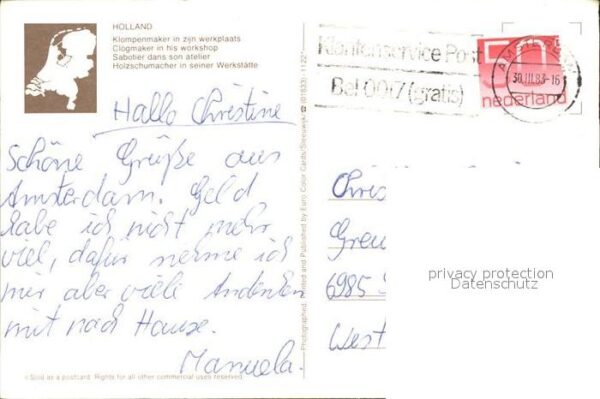 HOLLAND
Klompenmaker in zijn werkplaats
Clogmaker in his workshop
Sabotier dans son atelier
Holzschumacher in seiner Werkstätte
Klantenservice Post
Bel 0017 (gratis)
AMSTERDAM
30.III.83-16
nederland
Hallo Christine
Schöne Grüße aus
Amsterdam. Geld
habe ich nicht mehr
viel, dafür nehme ich
mir aber viele Andenken
mit nach Hause.
Manuela.
Photographed, Printed and Published by Euro Color Cards/Sleeuwijk ☎ (01833)-1122*
Chris
Gren
6985
West
privacy protection
Datenschutz
Sold as a postcard. Rights for all other commercial uses reserved